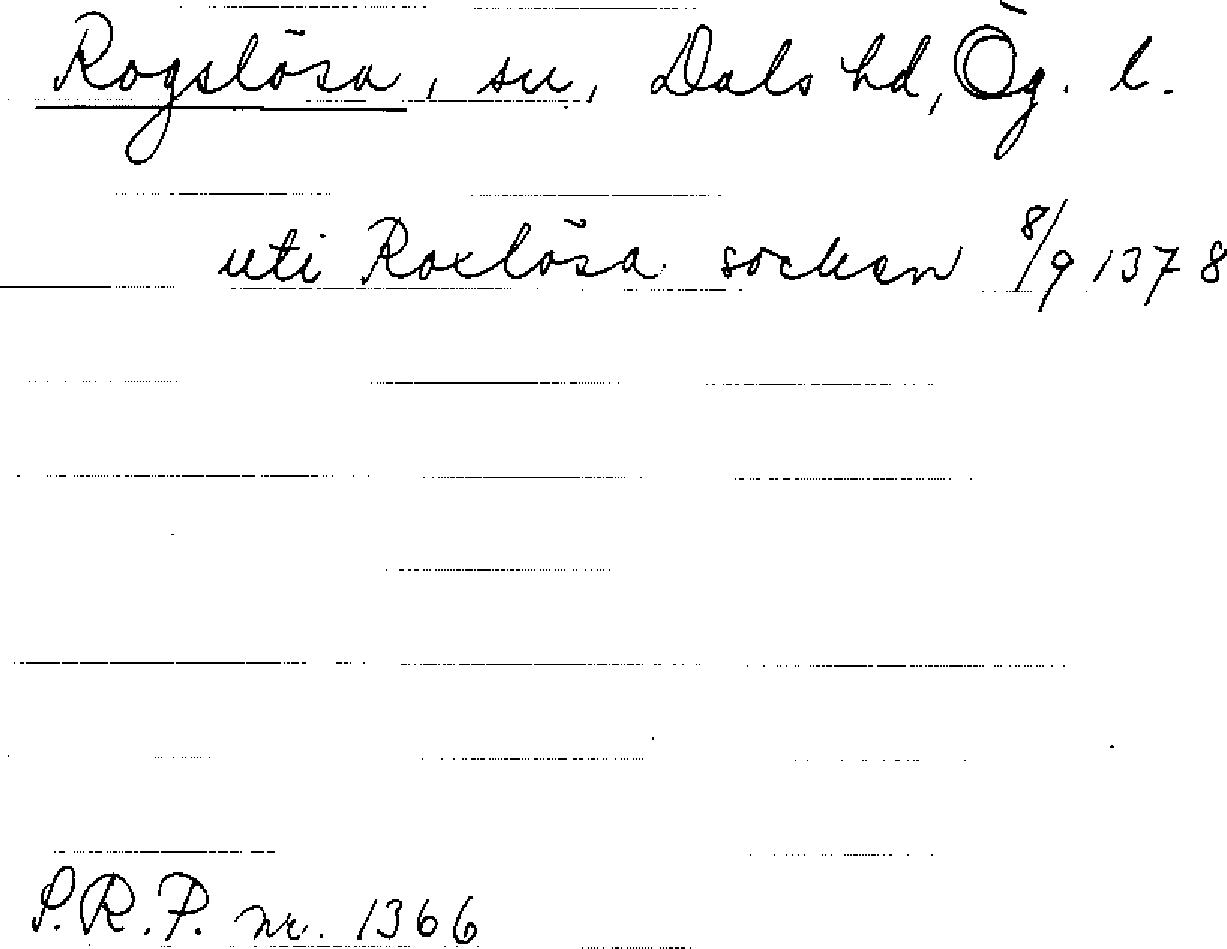 Rogslösa, sn, Dals hd, Ög. l.
uti Roxlösa socken 8/9 1378
S.R.P. nr. 1366